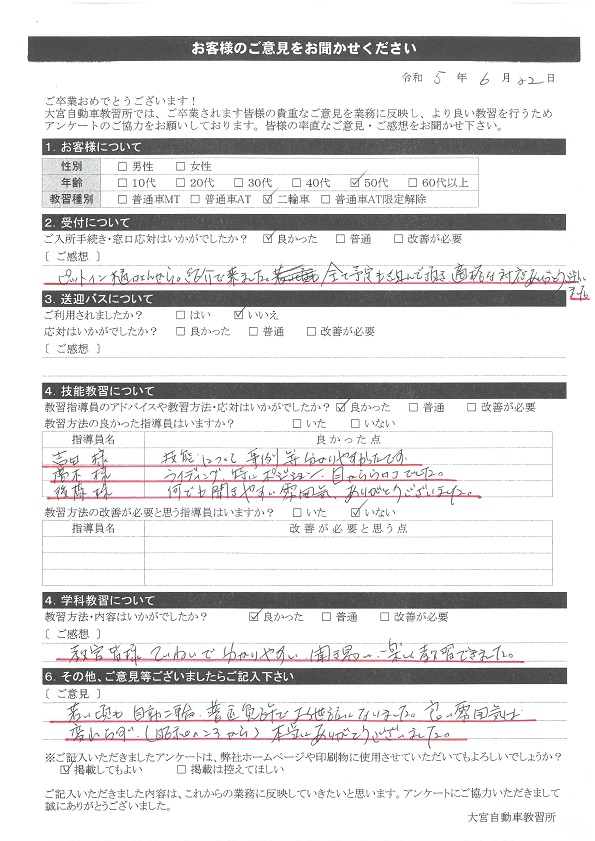 お客様のご意見をお聞かせください
令和 5 年 6 月 22 日
ご卒業おめでとうございます！
大宮自動車教習所では、ご卒業されます皆様の貴重なご意見を業務に反映し、より良い教習を行うため
アンケートのご協力をお願いしております。皆様の率直なご意見・ご感想をお聞かせ下さい。
1. お客様について
性別 □ 男性 □ 女性
年齢 □ 10代 □ 20代 □ 30代 □ 40代 ☑ 50代 □ 60代以上
教習種別 □ 普通車MT □ 普通車AT ☑ 二輪車 □ 普通車AT限定解除
2. 受付について
ご入所手続き・窓口応対はいかがでしたか？ ☑ 良かった □ 普通 □ 改善が必要
〔 ご感想 〕
ピットイン 樋口さんから。紹介で来ました。 全て予定も組んで頂き 適格な対応ありがとうござい
ました
3. 送迎バスについて
ご利用されましたか？ □ はい ☑ いいえ
応対はいかがでしたか？ □ 良かった □ 普通 □ 改善が必要
〔 ご感想 〕
4. 技能教習について
教習指導員のアドバイスや教習方法・応対はいかがでしたか？ ☑ 良かった □ 普通 □ 改善が必要
教習方法の良かった指導員はいますか？ □ いた □ いない
指導員名 良かった点
吉田 様 技能について 事例 等 分かりやすかったです
高木 様 ライディング、特に ポジション 目からウロコでした。
後藤 様 何でも聞きやすい雰囲気 ありがとうございました。
教習方法の改善が必要と思う指導員はいますか？ □ いた ☑ いない
指導員名 改善が必要と思う点
4. 学科教習について
教習方法・内容はいかがでしたか？ ☑ 良かった □ 普通 □ 改善が必要
〔 ご感想 〕
教官皆様 ていねいで 分かりやすい 聞き易い、楽しく教習できました。
6. その他、ご意見等ございましたらご記入下さい
〔 ご意見 〕
若い頃も 自動二輪、普通免許で お世話になりました。 良い雰囲気は
変わらず（昭和のころから） 本当にありがとうございました。
※ご記入いただきましたアンケートは、弊社ホームページや印刷物に使用させていただいてもよろしいでしょうか？
☑ 掲載してもよい □ 掲載は控えてほしい
ご記入いただきました内容は、これからの業務に反映していきたいと思います。アンケートにご協力いただきまして
誠にありがとうございました。
大宮自動車教習所